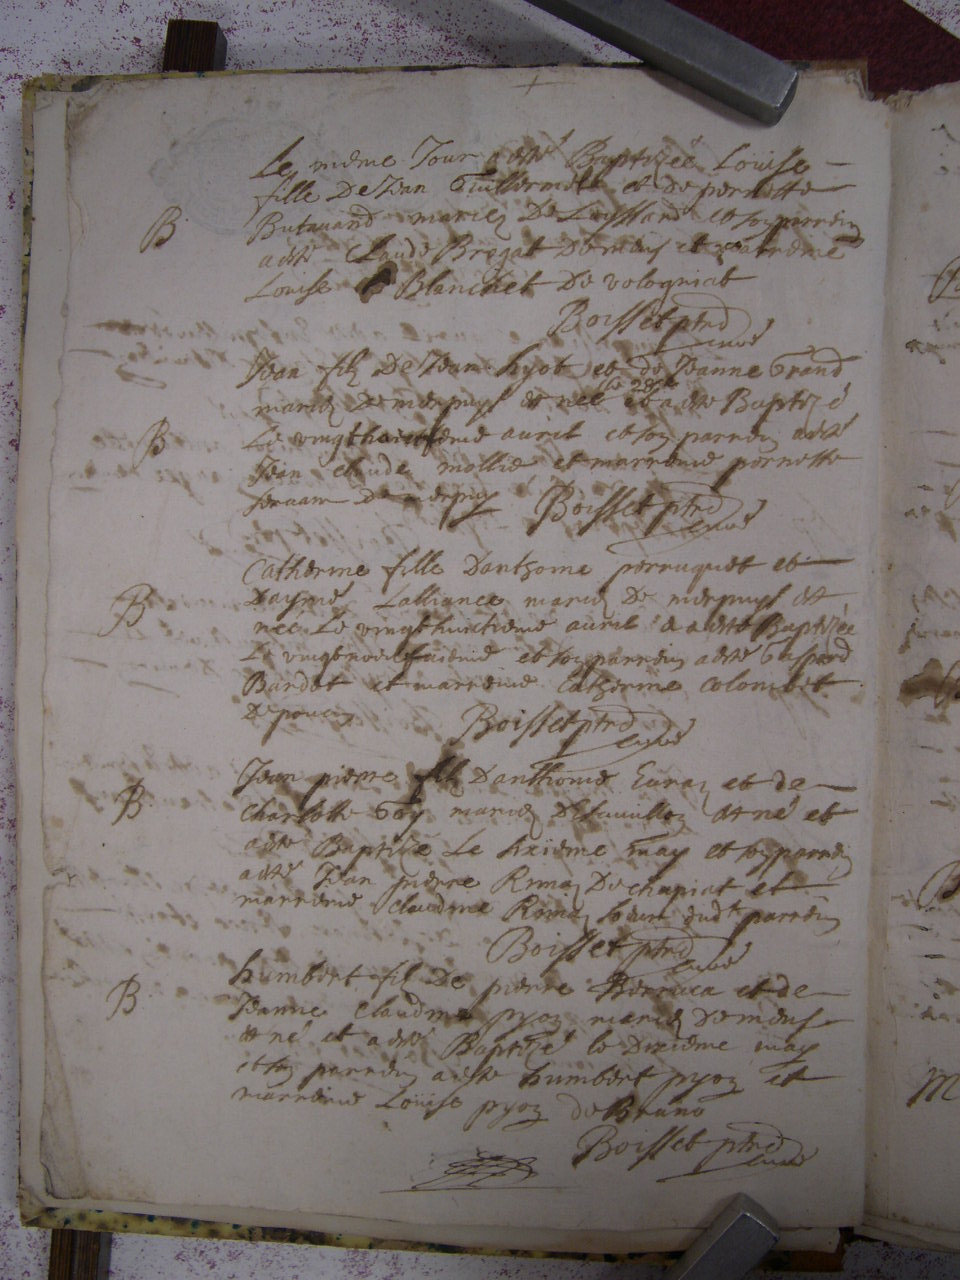 Le meme Jour a esté Baptizée Louise
fille De Jean Guillermet et De pernette
B Butavand mariez De Loyssard et son parrein
a esté Claude Bregat De mens et marreine
Louise Blanchet De vologniat
Boisset ptre
curé
Jean filz De Jean hyot et de Jeanne Grand
mariez De merpuys est né le 26 et a esté Baptizé
B Le vingthuictieme avril et son parrein a esté
Jean claude mollie et marreine pernette
De merpuys Boisset ptre
curé
Catherine fille D'anthoine perruquet et
B Daymé Lalliance mariez De merpuys est
née Le vingthuitieme avril a esté Baptizée
Le vingt et son parrein a esté Gaspard
Bardet et marreine Catherine Colombet
De poncin Boisset ptre
curé
Jean pierre filz D'anthoine et de
B Charlotte Goy mariez est né et
a esté Baptizé Le sixieme may et son parrein
a esté Jean pierre De chapiat et
marreine Claudine soeur dudt parrein
Boisset ptre
curé
humbert filz De pierre et de
B Jeanne Claudine pyoz mariez De mens
est né et a esté Baptizé le Dixieme may
et son parrein a esté humbert pyoz et
marreine Louise pyoz de Bruno
Boisset ptre
curé